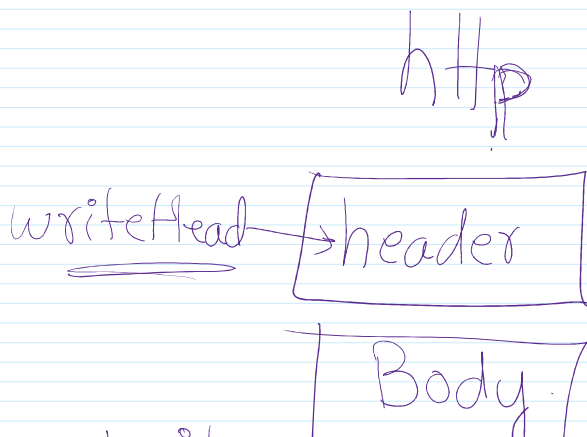 http
writeHead header
Body